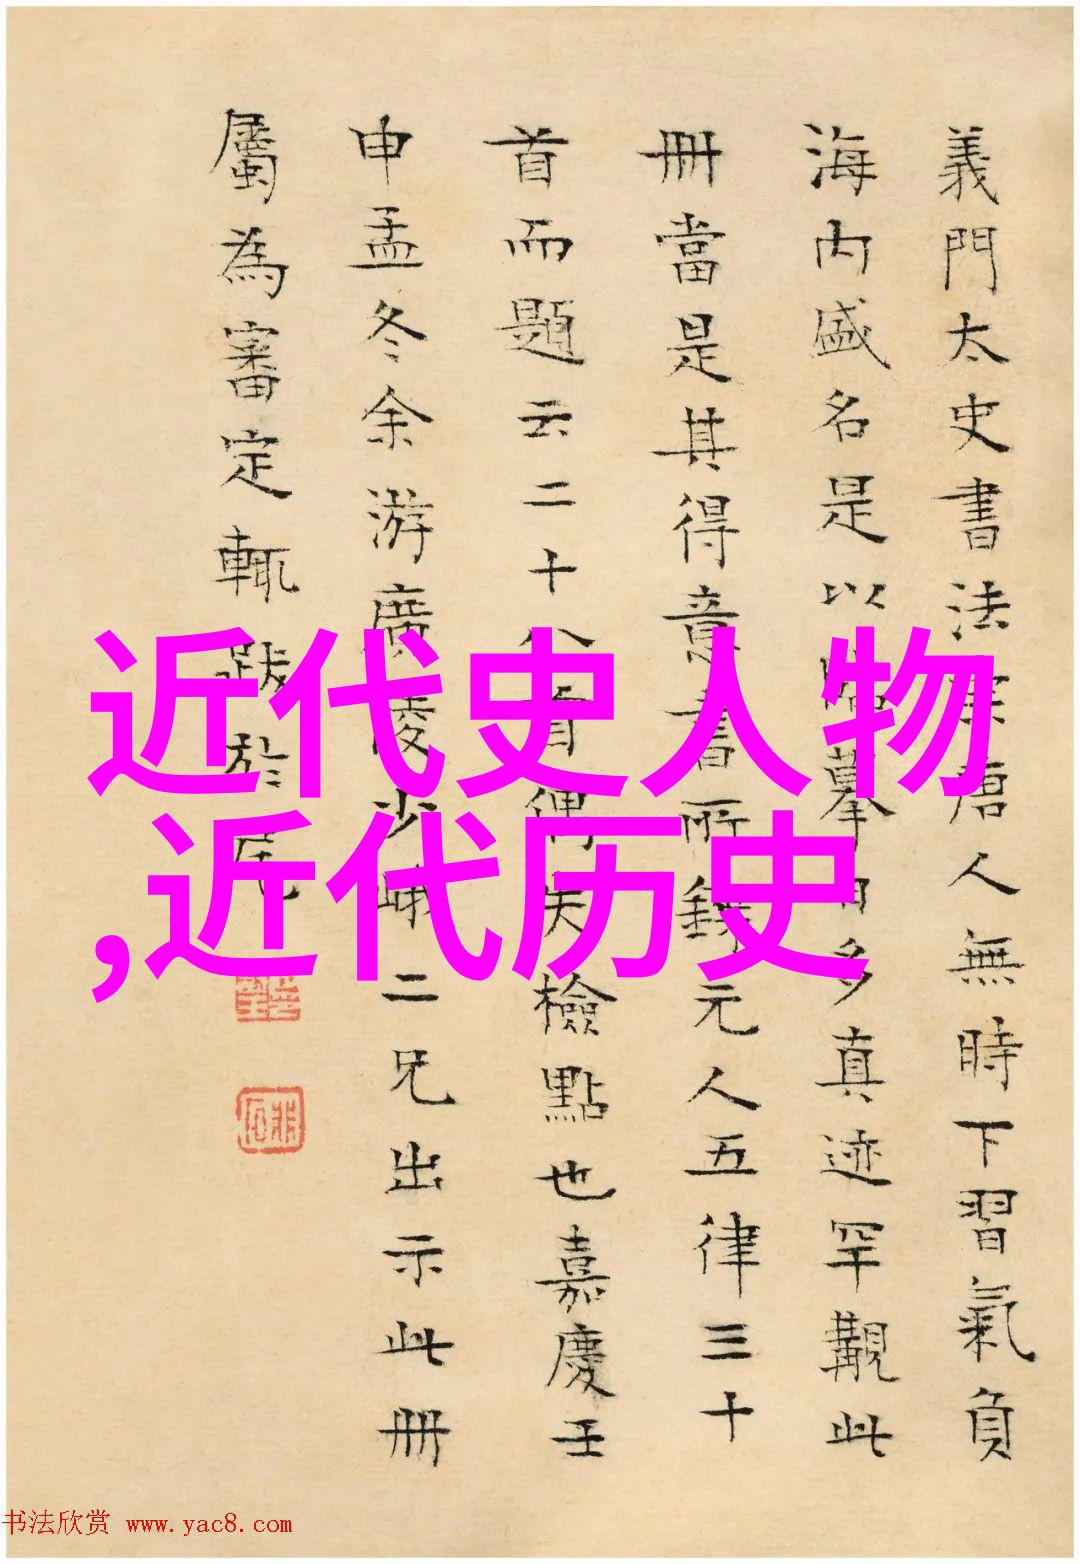 義門太史書法宗唐人無時下習氣負
海内盛名是以臨摹日多真迹罕觏此
冊當是其得意書所録元人五律三十
首而題云二十八首偶失檢點也嘉慶壬
申孟冬余游廣陵少峨二兄出示此冊
屬為審定輒跋於尾
近代史人物
,近代历史
书法欣赏 www.yac8.com